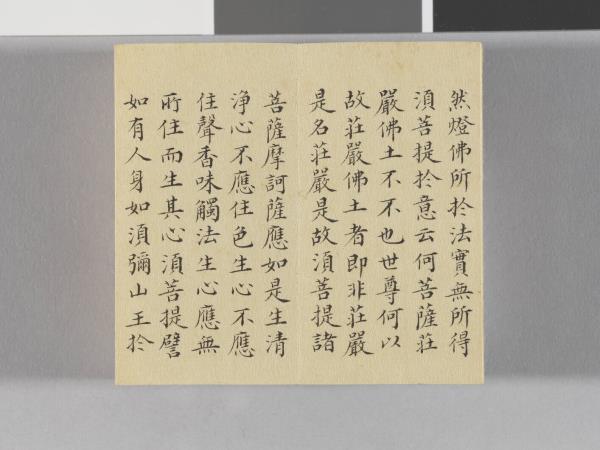 然燈佛所於法實無所得
須菩提於意云何菩薩莊
嚴佛土不不也世尊何以
故莊嚴佛土者即非莊嚴
是名莊嚴是故須菩提諸
菩薩摩訶薩應如是生清
淨心不應住色生心不應
住聲香味觸法生心應無
所住而生其心須菩提譬
如有人身如須彌山王於